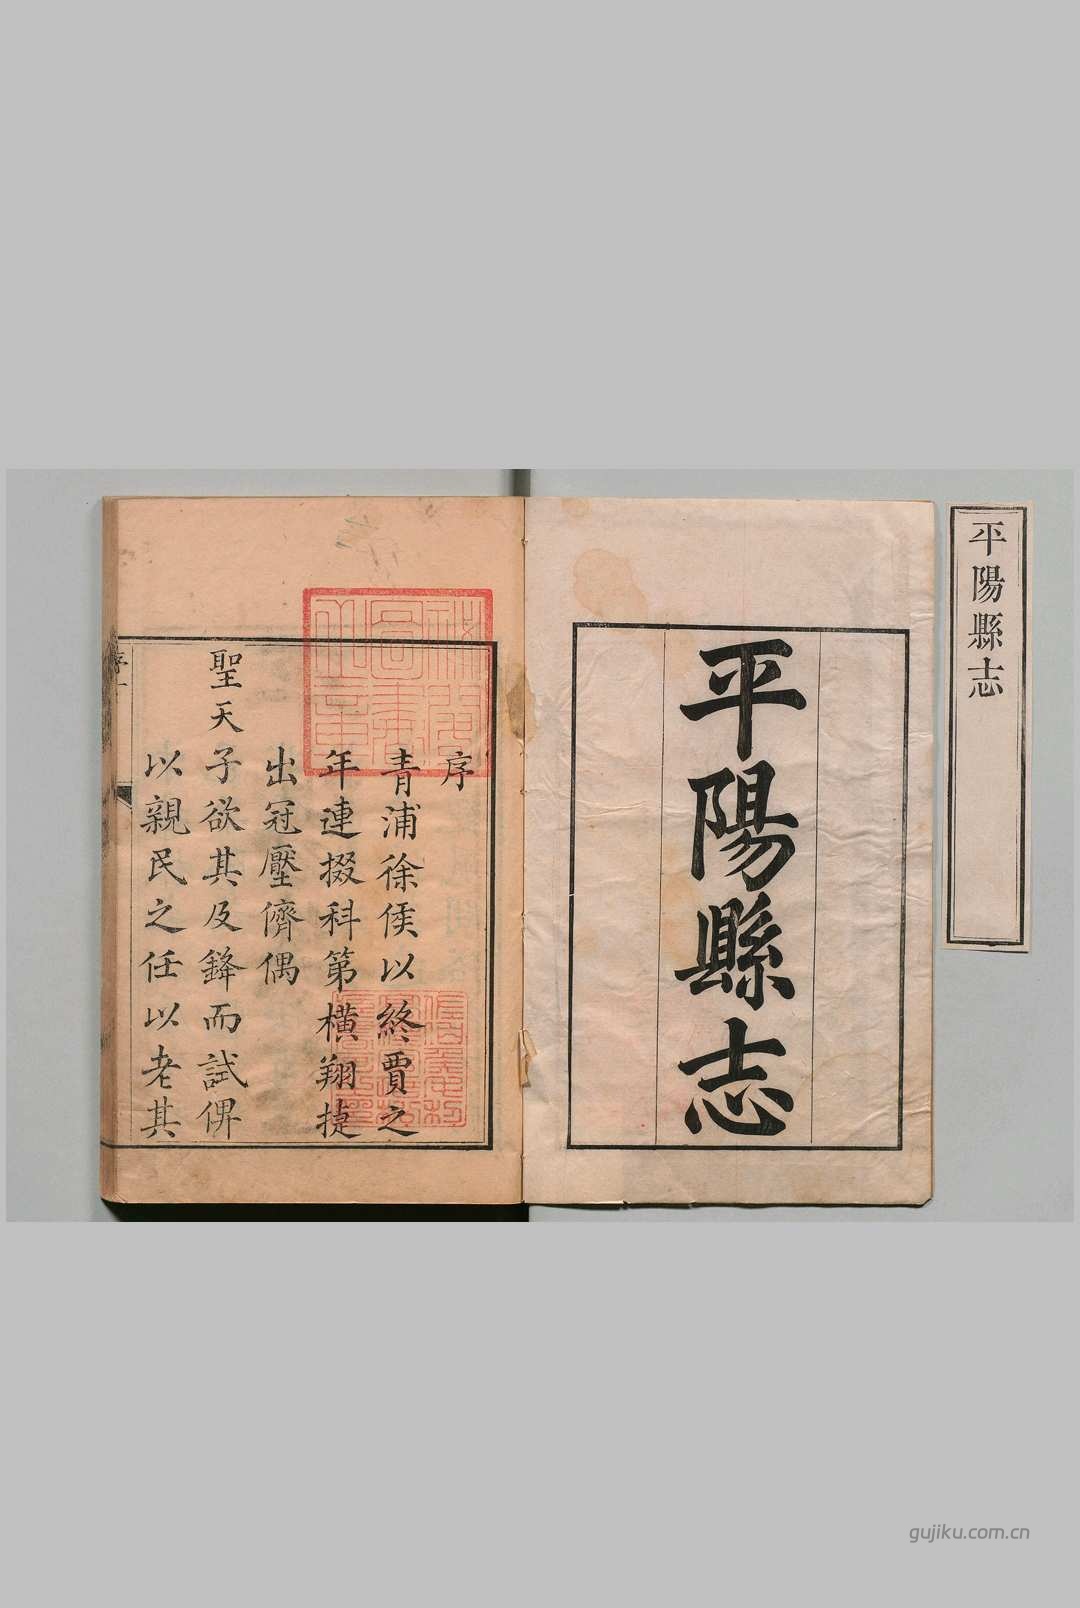 平陽縣志
平陽縣志
序
青浦徐侯以終賈之
年連掇科第橫翔捷
出冠壓儕偶
聖天子欲其及鋒而試俾
以親民之任以老其
序一
gujiku.com.cn